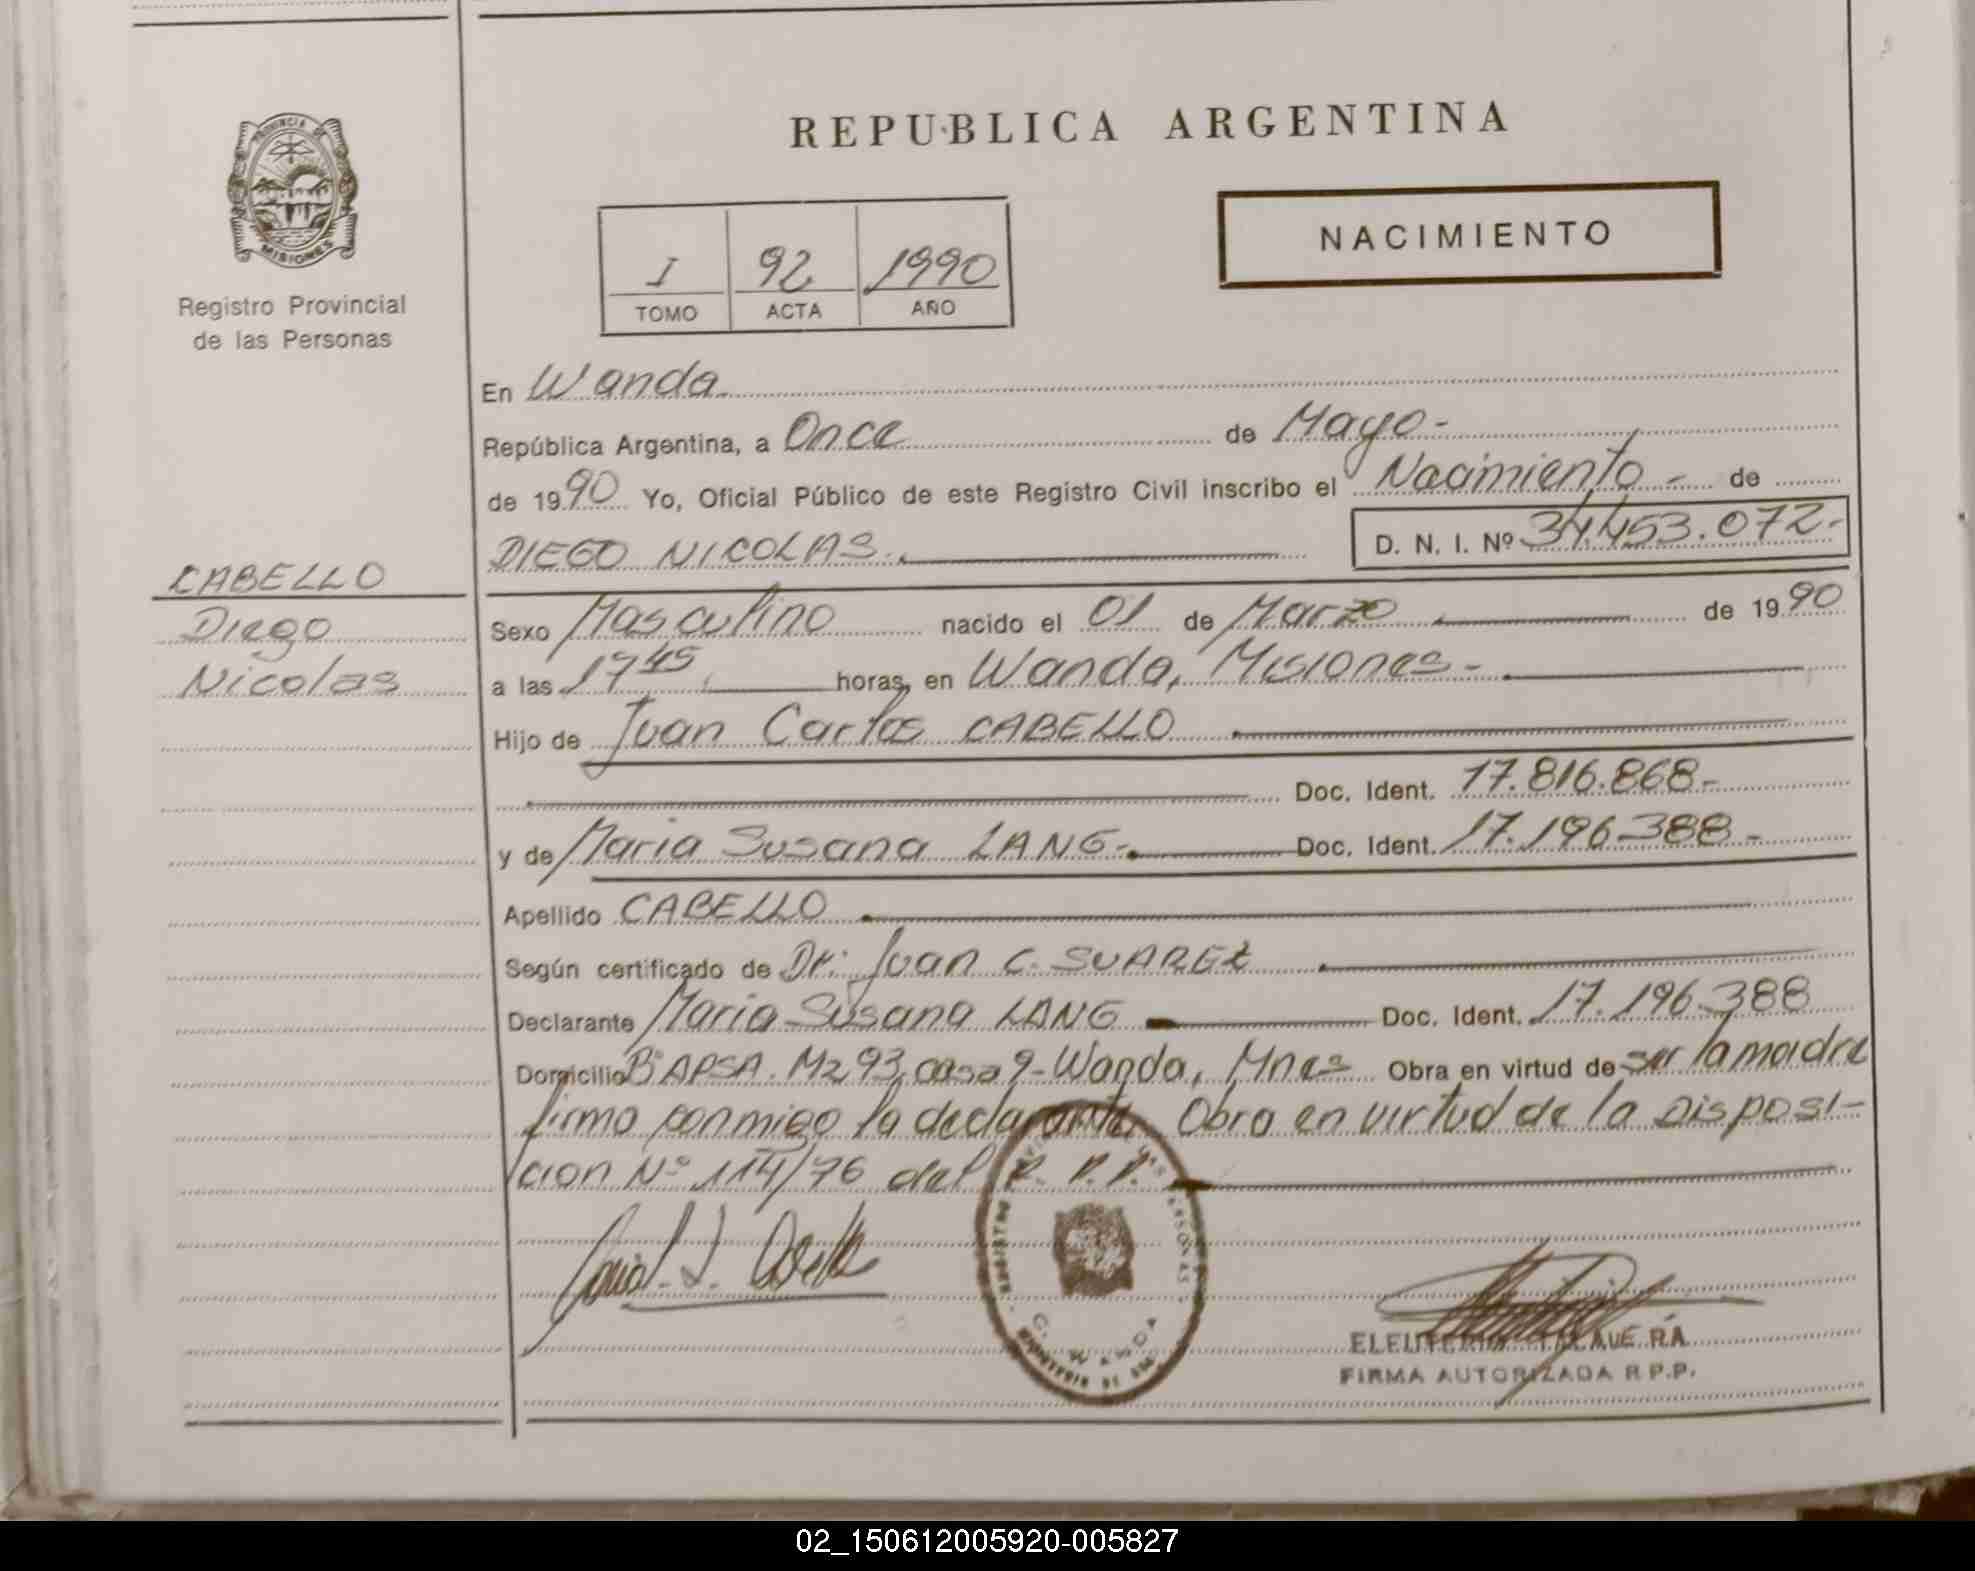 REPUBLICA ARGENTINA
PROVINCIA DE
MISIONES
Registro Provincial
de las Personas
I 92 1990
TOMO ACTA AÑO
NACIMIENTO
En Wanda
República Argentina, a Once de Mayo-
de 1990 Yo, Oficial Público de este Registro Civil inscribo el Nacimiento - de
DIEGO NICOLAS. D. N. I. Nº 34.453.072-
CABELLO
Diego
Nicolas
Sexo Masculino nacido el 01 de Marzo de 1990
a las 17 45 horas, en Wanda, Misiones-
Hijo de Juan Carlos CABELLO
Doc. Ident. 17.816.868-
y de Maria Susana LANG- Doc. Ident. 17.196.388-
Apellido CABELLO
Según certificado de Dr: Juan C. SUAREZ
Declarante Maria Susana LANG Doc. Ident. 17.196.388
Domicilio Bº APSA. Mz 93, casa 9-Wanda, Mnes Obra en virtud de ser la madre
firmo conmigo la declarante. Obra en virtud de la Disposi-
cion Nº 114/76 del R. P. P.
WANDA
ELEUTERIO TALAVERA
FIRMA AUTORIZADA R.P.P.
02_150612005920-005827